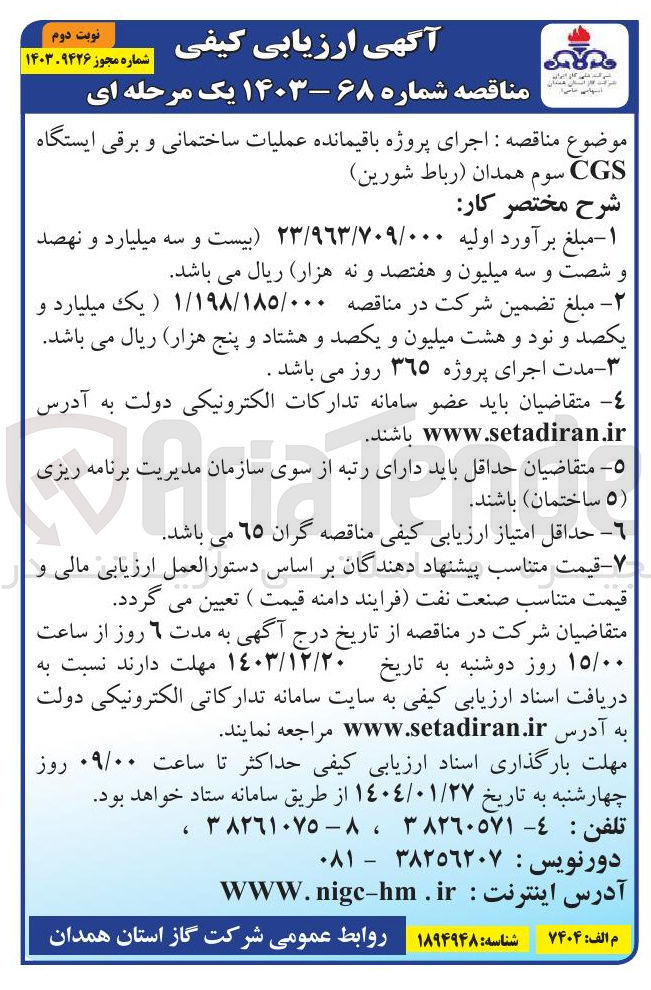 آگهی ارزیابی کیفی
نوبت دوم
شماره مجوز ۱۴۰۳.۹۴۲۶
مناقصه شماره ۶۸ – ۱۴۰۳ یک مرحله ای
شرکت ملی گاز ایران
شرکت گاز استان همدان
(سهامی خاص)
موضوع مناقصه : اجرای پروژه باقیمانده عملیات ساختمانی و برقی ایستگاه
CGS سوم همدان (رباط شورین)
شرح مختصر کار:
۱–مبلغ برآورد اولیه ۲۳/۹۶۳/۷۰۹/۰۰۰ (بیست و سه میلیارد و نهصد
و شصت و سه میلیون و هفتصد و نه هزار) ریال می باشد.
۲– مبلغ تضمین شرکت در مناقصه ۱/۱۹۸/۱۸۵/۰۰۰ ( یک میلیارد و
یکصد و نود و هشت میلیون و یکصد و هشتاد و پنج هزار) ریال می باشد.
۳–مدت اجرای پروژه ۳۶۵ روز می باشد .
۴– متقاضیان باید عضو سامانه تدارکات الکترونیکی دولت به آدرس
www.setadiran.ir باشند.
۵– متقاضیان حداقل باید دارای رتبه از سوی سازمان مدیریت برنامه ریزی
(۵ ساختمان) باشند.
۶– حداقل امتیاز ارزیابی کیفی مناقصه گران ۶۵ می باشد.
۷–قیمت متناسب پیشنهاد دهندگان بر اساس دستورالعمل ارزیابی مالی و
قیمت متناسب صنعت نفت (فرایند دامنه قیمت ) تعیین می گردد.
متقاضیان شرکت در مناقصه از تاریخ درج آگهی به مدت ۶ روز از ساعت
۱۵/۰۰ روز دوشنبه به تاریخ ۱۴۰۳/۱۲/۲۰ مهلت دارند نسبت به
دریافت اسناد ارزیابی کیفی به سایت سامانه تدارکاتی الکترونیکی دولت
به آدرس www.setadiran.ir مراجعه نمایند.
مهلت بارگذاری اسناد ارزیابی کیفی حداکثر تا ساعت ۰۹/۰۰ روز
چهارشنبه به تاریخ ۱۴۰۴/۰۱/۲۷ از طریق سامانه ستاد خواهد بود.
تلفن : ۴– ۳۸۲۶۰۵۷۱ ، ۸ – ۳۸۲۶۱۰۷۵ ،
دورنویس : ۳۸۲۵۶۲۰۷ – ۰۸۱
آدرس اینترنت : WWW. nigc-hm . ir
م الف: ۷۴۰۴
شناسه: ۱۸۹۴۹۴۸
روابط عمومی شرکت گاز استان همدان
AriaTende